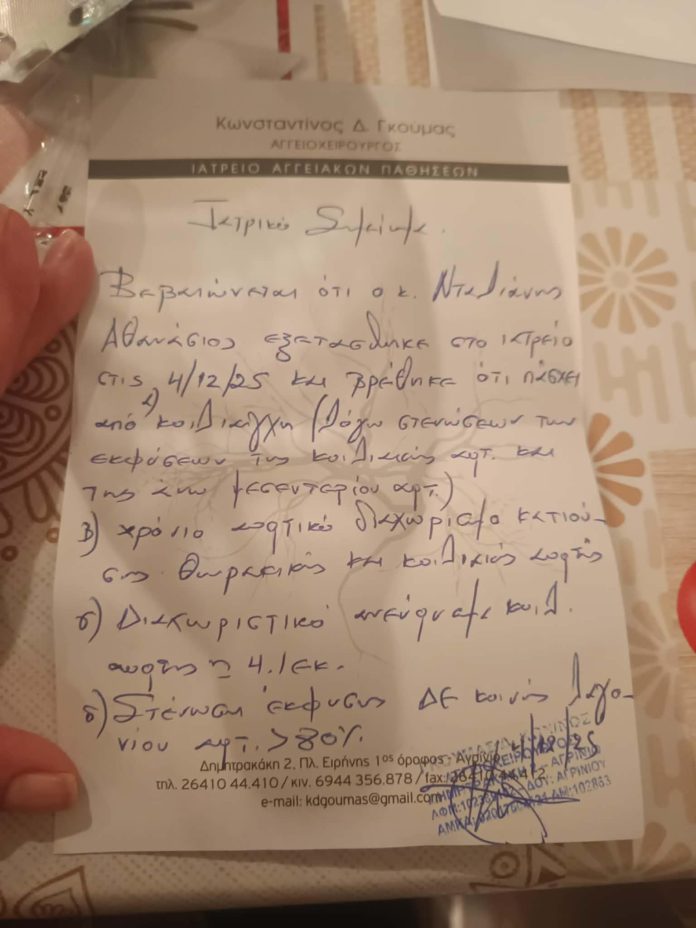 Κωνσταντίνος Δ. Γκούμας
ΑΓΓΕΙΟΧΕΙΡΟΥΡΓΟΣ
ΙΑΤΡΕΙΟ ΑΓΓΕΙΑΚΩΝ ΠΑΘΗΣΕΩΝ
Ιατρικό Σημείωμα.
Βεβαιώνεται ότι ο κ. Νταλιάνης
Αθανάσιος εξετάσθηκε στο ιατρείο
στις 4/12/25 και βρέθηκε ότι πάσχει
από α) κοιλιάγχη (λόγω στενώσεων των
εκφύσεων της κοιλιακής αρτ. και
της άνω μεσεντερίου αρτ.)
β) χρόνιο αορτικό διαχωρισμό κατιού-
σης θωρακικής και κοιλιακής αορτής
γ) Διαχωριστικό ανεύρυσμα κοιλ.
αορτής 4.1εκ.
δ) Στένωση έκφυσης ΔΕ κοινής λαγο-
νίου αρτ. >80%.
Δημητρακάκη 2, Πλ. Ειρήνης 1ος όροφος - Αγρίνιο
τηλ. 26410 44.410 / κιν. 6944 356.878 / fax: 26410 44.412
e-mail: kdgoumas@gmail.com